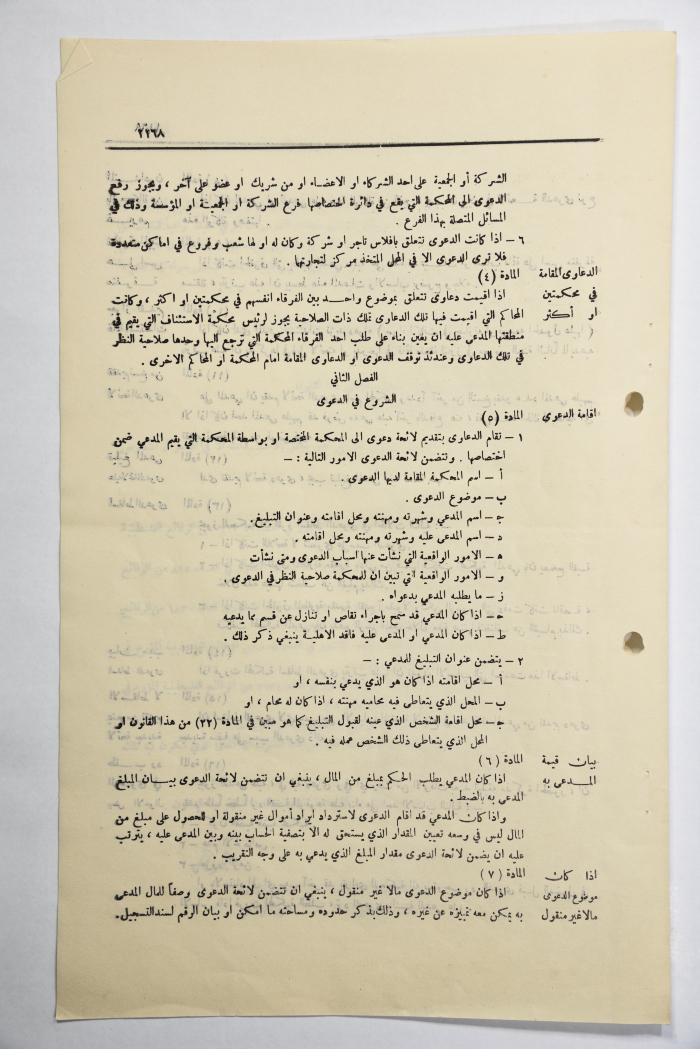 ٢٢٦٨
الشركة أو الجمعية على احد الشركاء او الاعضاء او من شريك او عضو على آخر ، ويجوز رفع
الدعوى الى المحكمة التي يقع في دائرة اختصاصها فرع الشركة او الجمعية او المؤسسة وذلك في
المسائل المتصلة بهذا الفرع .
٦ – اذا كانت الدعوى تتعلق بافلاس تاجر او شركة وكان له او لها شعب وفروع في اماكن متعددة
فلا ترى الدعوى الا في المحل المتخذ مركز لتجارتها .
الدعاوى المقامة في محكمتين او أكثر
المادة (٤)
اذا اقيمت دعاوى تتعلق بموضوع واحد بين الفرقاء انفسهم في محكمتين او اكثر ، وكانت
المحاكم التي اقيمت فيها تلك الدعاوى تملك ذات الصلاحية يجوز لرئيس محكمة الاستئناف التي يقيم في
منطقتها المدعى عليه ان يعين بناء على طلب احد الفرقاء المحكمة التي ترجع اليها وحدها صلاحية النظر
في تلك الدعاوى وعندئذ توقف الدعوى او الدعاوى المقامة امام المحكمة او المحاكم الاخرى .
الفصل الثاني
الشروع في الدعوى
اقامة الدعوى
المادة (٥)
١ – تقام الدعاوى بتقديم لائحة دعوى الى المحكمة المختصة او بواسطة المحكمة التي يقيم المدعي ضمن
اختصاصها . وتتضمن لائحة الدعوى الامور التالية : –
أ – اسم المحكمة المقامة لديها الدعوى .
ب – موضوع الدعوى .
ج – اسم المدعي وشهرته ومهنته ومحل اقامته وعنوان التبليغ.
د – اسم المدعى عليه وشهرته ومهنته ومحل اقامته .
ه – الامور الواقعية التي نشأت عنها اسباب الدعوى ومتى نشأت
و – الامور الواقعية التي تبين ان للمحكمة صلاحية النظر في الدعوى .
ز – ما يطلبه المدعي بدعواه .
ح – اذا كان المدعي قد سمح باجراء تقاص او تنازل عن قسم مما يدعيه
ط – اذا كان المدعي او المدعى عليه فاقد الاهلية ينبغي ذكر ذلك .
٢ – يتضمن عنوان التبليغ للمدعي : –
أ – محل اقامته اذا كان هو الذي يدعي بنفسه ، او
ب – المحل الذي يتعاطى فيه محاميه مهنته ، اذا كان له محام ، او
ج – محل اقامة الشخص الذي عينه لقبول التبليغ كما هو مبين في المادة (٢٢) من هذا القانون او
المحل الذي يتعاطى ذلك الشخص عمله فيه .
بيان قيمة المدعى به
المادة (٦)
اذا كان المدعي يطلب الحكم بمبلغ من المال ، ينبغي ان تتضمن لائحة الدعوى بيان المبلغ
المدعى به بالضبط .
واذا كان المدعي قد اقام الدعوى لاسترداد ايراد أموال غير منقولة او للحصول على مبلغ من
المال ليس في وسعه تعيين المقدار الذي يستحق له الا بتصفية الحساب بينه وبين المدعى عليه ، يترتب
عليه ان يضمن لائحة الدعوى مقدار المبلغ الذي يدعي به على وجه التقريب .
اذا كان موضوع الدعوى مالا غير منقول
المادة (٧)
اذا كان موضوع الدعوى مالا غير منقول ، ينبغي ان تتضمن لائحة الدعوى وصفاً للمال المدعى
به يمكن معه تمييزه عن غيره ، وذلك بذكر حدوده ومساحته ما امكن او بيان الرقم لسند التسجيل.